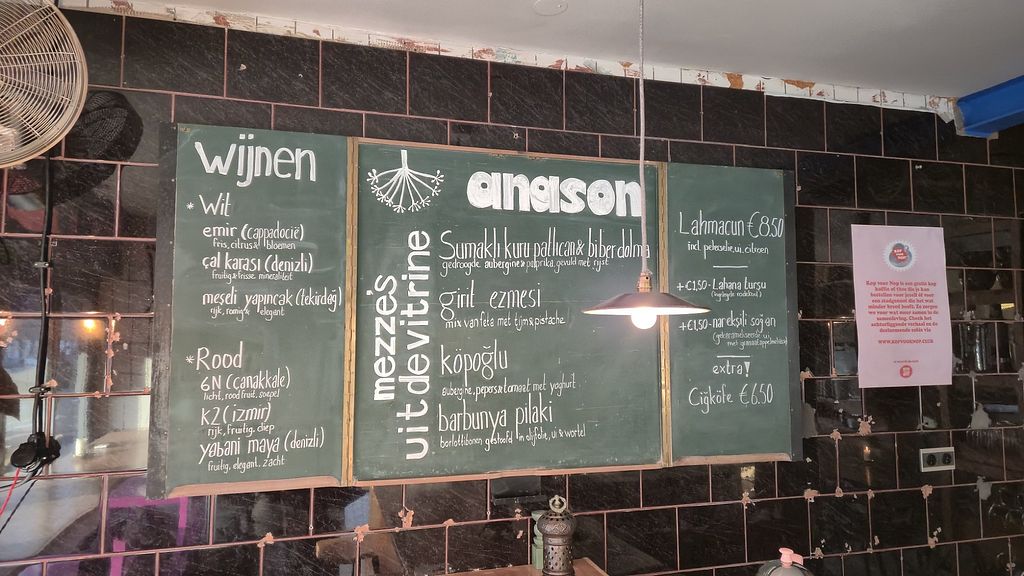 wijnen
* Wit
emir (cappadocië)
fris, citrus & bloemen
çal karası (denizli)
fruitig & frisse mineraliteit
meşeli yapıncak (tekirdağ)
rijk, romig & elegant
* Rood
6N (çanakkale)
licht, rood fruit, soepel
K2 (izmir)
rijk, fruitig, diep
yabani maya (denizli)
fruitig, elegant, zacht
anason
mezzés
uit de vitrine
Sumaklı kuru patlıcan & biber dolma
gedroogde aubergine & paprika, gevuld met rijst
girit ezmesi
mix van feta met tijm & pistache
köpoğlu
aubergine, pepers & tomaat met yoghurt
barbunya pilaki
borlottibonen gestoofd in olijfolie, ui & wortel
Lahmacun €8.50
incl. peterselie, ui, citroen
+€1,50 - Lahana turşu
+€1,50 - nar ekşili soğan
extra!
Çiğköfte €6.50
Kop voor Nop is een gratis kop
WWW.KOPVOORNOP.CLUB